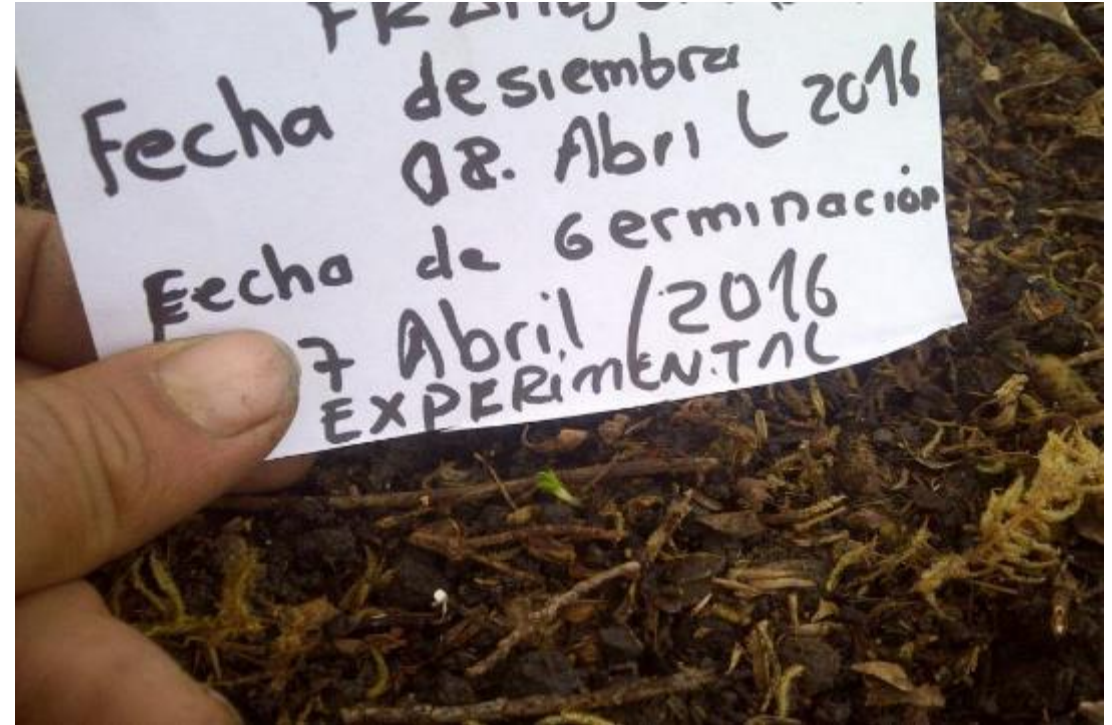 Fecha desiembra
08. Abril 2016
Fecha de Germinación
7 Abril / 2016
EXPERIMENTAL